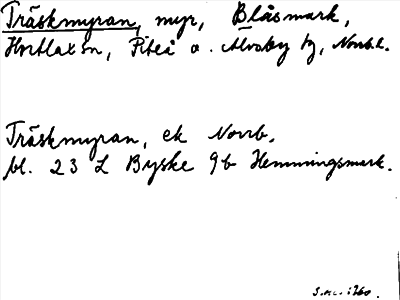 Träskmyran, myr, Blåsmark,
Hortlaxen, Piteå o. Älvsby tg, Norrb.l.
Träskmyran, ek Norrb.
bl. 23 L Byske 9b Hemmingsmark.
1960.